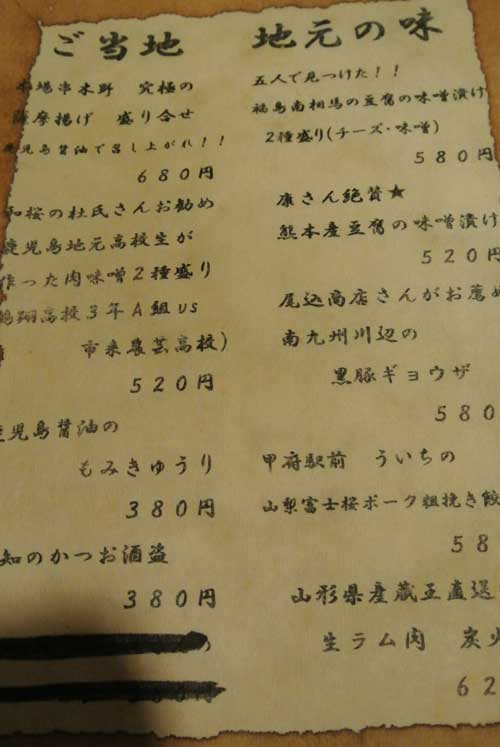 ご当地 地元の味
本場串木野 究極の
薩摩揚げ 盛り合せ
鹿児島醤油で召し上がれ！！
680円
和桜の杜氏さんお勧め
鹿児島地元高校生が
作った肉味噌2種盛り
鶴翔高校3年A組vs
市来農芸高校）
520円
鹿児島醤油の
もみきゅうり
380円
知のかつお酒盗
380円
五人で見つけた！！
福島南相馬の豆腐の味噌漬け
2種盛り(チーズ・味噌)
580円
康さん絶賛★
熊本産豆腐の味噌漬け
520円
尾込商店さんがお薦め
南九州川辺の
黒豚ギョウザ
580
甲府駅前 ういちの
山梨富士桜ポーク粗挽き餃
58
山形県産蔵王直送
生ラム肉 炭火
62